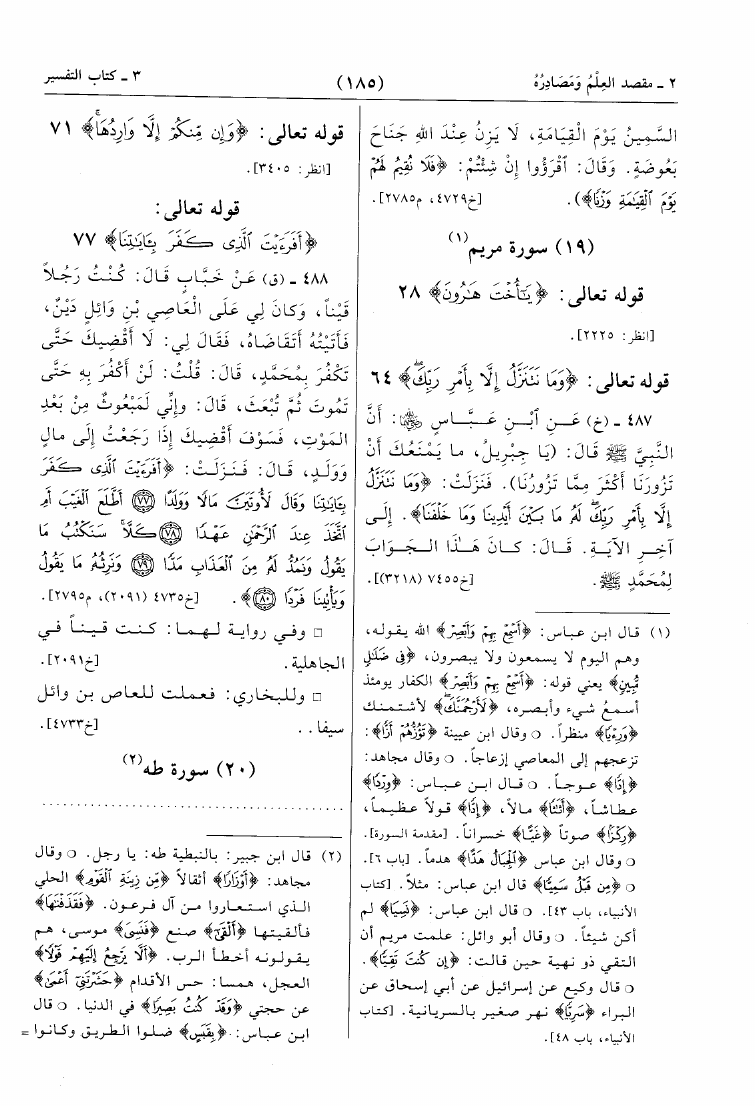 ٢ ـ مقصد العِلْمُ وَمَصَادِرُهُ
(١٨٥)
٣ ـ كتاب التفسير
السَّمِينُ يَوْمَ الْقِيَامَةِ، لَا يَزِنُ عِنْدَ اللهِ جَنَاحَ
بَعُوضَةٍ. وَقَالَ: اقْرَؤُوا إِنْ شِئْتُمْ: ﴿فَلَا نُقِيمُ لَهُمْ
يَوْمَ ٱلْقِيَٰمَةِ وَزْنًا﴾). [خ٤٧٢٩، م٢٧٨٥].
(١٩) سورة مريم(١)
قوله تعالى: ﴿يَٰٓأُخْتَ هَٰرُونَ﴾ ٢٨
[انظر: ٢٢٢٥].
قوله تعالى: ﴿وَمَا نَتَنَزَّلُ إِلَّا بِأَمْرِ رَبِّكَۖ﴾ ٦٤
٤٨٧ ـ (خ) عَنِ ابْنِ عَبَّاسٍ ﷺ: أَنَّ
النَّبِيَّ ﷺ قَالَ: (يَا جِبْرِيلُ، ما يَمْنَعُكَ أَنْ
تَزُورَنَا أَكْثَرَ مِمَّا تَزُورُنَا). فَنَزَلَتْ: ﴿وَمَا نَتَنَزَّلُ
إِلَّا بِأَمْرِ رَبِّكَۖ لَهُۥ مَا بَيْنَ أَيْدِينَا وَمَا خَلْفَنَا﴾. إِلَى
آخِرِ الآيَةِ. قَالَ: كَانَ هَذَا الْجَوَابَ
لِمُحَمَّدٍ ﷺ. [خ٧٤٥٥ (٣٢١٨)].
(١) قال ابن عباس: ﴿أَسْمِعْ بِهِمْ وَأَبْصِرْ﴾ الله يقوله،
وهم اليوم لا يسمعون ولا يبصرون، ﴿فِى ضَلَٰلٍ
مُّبِينٍ﴾ يعني قوله: ﴿أَسْمِعْ بِهِمْ وَأَبْصِرْ﴾ الكفار يومئذ
أسمعُ شيء وأبصره، ﴿لَأَرْجُمَنَّكَ﴾ لأشتمنك
﴿وَرِءْيًا﴾ منظراً. ○ وقال ابن عيينة ﴿تَؤُزُّهُمْ أَزًّا﴾:
تزعجهم إلى المعاصي إزعاجاً. ○ وقال مجاهد:
﴿إِدًّا﴾ عوجاً. ○ قال ابن عباس: ﴿وِرْدًا﴾
عطاشاً، ﴿أَثَٰثًا﴾ مالاً، ﴿إِدًّا﴾ قولاً عظيماً،
﴿رِكْزًا﴾ صوتاً ﴿غَيًّا﴾ خسراناً. [مقدمة السورة].
○ وقال ابن عباس ﴿ٱلْجِبَالُ هَدًّا﴾ هدماً. [باب ٦].
○ ﴿مِن قَبْلُ سَمِيًّا﴾ قال ابن عباس: مثلاً. [كتاب
الأنبياء، باب ٤٣]. ○ قال ابن عباس: ﴿نَسِيًّا﴾ لم
أكن شيئاً. ○ وقال أبو وائل: علمت مريم أن
التقي ذو نهية حين قالت: ﴿إِن كُنتَ تَقِيًّا﴾.
○ قال وكيع عن إسرائيل عن أبي إسحاق عن
البراء ﴿سَرِيًّا﴾ نهر صغير بالسريانية. [كتاب
الأنبياء، باب ٤٨].
قوله تعالى: ﴿وَإِن مِّنكُمْ إِلَّا وَارِدُهَاۚ﴾ ٧١
[انظر: ٣٤٠٥].
قوله تعالى:
﴿أَفَرَءَيْتَ ٱلَّذِى كَفَرَ بِـَٔايَٰتِنَا﴾ ٧٧
٤٨٨ ـ (ق) عَنْ خَبَّابٍ قَالَ: كُنْتُ رَجُلاً
قَيْناً، وَكانَ لِي عَلَى الْعَاصِي بْنِ وَائِلٍ دَيْنٌ،
فَأَتَيْتُهُ أَتَقَاضَاهُ، فَقَالَ لِي: لَا أَقْضِيكَ حَتَّى
تَكْفُرَ بِمُحَمَّدٍ، قَالَ: قُلْتُ: لَنْ أَكْفُرَ بِهِ حَتَّى
تَمُوتَ ثُمَّ تُبْعَثَ، قَالَ: وَإِنِّي لَمَبْعُوثٌ مِنْ بَعْدِ
المَوْتِ، فَسَوْفَ أَقْضِيكَ إِذَا رَجَعْتُ إِلَى مالٍ
وَوَلَدٍ، قَالَ: فَنَزَلَتْ: ﴿أَفَرَءَيْتَ ٱلَّذِى كَفَرَ
بِـَٔايَٰتِنَا وَقَالَ لَأُوتَيَنَّ مَالًا وَوَلَدًا ۝٧٧ أَطَّلَعَ ٱلْغَيْبَ أَمِ
ٱتَّخَذَ عِندَ ٱلرَّحْمَٰنِ عَهْدًا ۝٧٨ كَلَّاۚ سَنَكْتُبُ مَا
يَقُولُ وَنَمُدُّ لَهُۥ مِنَ ٱلْعَذَابِ مَدًّا ۝٧٩ وَنَرِثُهُۥ مَا يَقُولُ
وَيَأْتِينَا فَرْدًا ۝٨٠﴾. [خ٤٧٣٥ (٢٠٩١)، م٢٧٩٥].
□ وفي رواية لهما: كنت قيناً في
الجاهلية. [خ٢٠٩١].
□ وللبخاري: فعملت للعاص بن وائل
سيفا.. [خ٤٧٣٣].
(٢٠) سورة طه(٢)
(٢) قال ابن جبير: بالنبطية طه: يا رجل. ○ وقال
مجاهد: ﴿أَوْزَارًا﴾ أثقالاً ﴿مِّن زِينَةِ ٱلْقَوْمِ﴾ الحلي
الذي استعاروا من آل فرعون. ﴿فَقَذَفْنَٰهَا﴾
فألقيتها ﴿أَلْقَى﴾ صنع ﴿فَنَسِىَ﴾ موسى، هم
يقولونه أخطأ الرب. ﴿أَلَّا يَرْجِعُ إِلَيْهِمْ قَوْلًا﴾
العجل، همسا: حس الأقدام ﴿حَشَرْتَنِىٓ أَعْمَىٰ﴾
عن حجتي ﴿وَقَدْ كُنتُ بَصِيرًا﴾ في الدنيا. ○ قال
ابن عباس: ﴿بِقَبَسٍ﴾ ضلوا الطريق وكانوا =